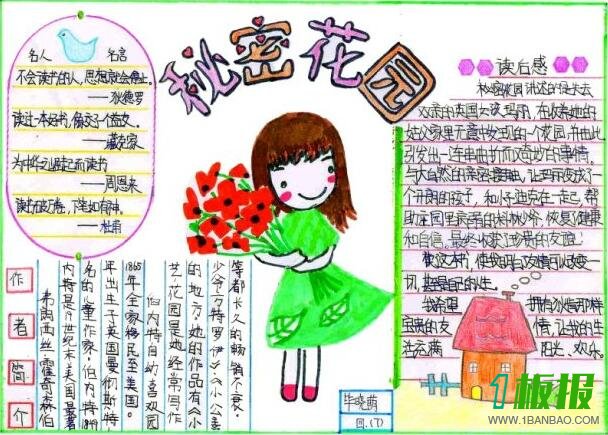 秘密花园
名人 名言
不会读书的人,思想就会停止。
——狄德罗
读过一本好书,像交了个益友。
——臧克家
为中华之崛起而读书
——周恩来
读书破万卷,下笔如有神。
——杜甫
读后感
秘密花园讲述的是失去
双亲的英国女孩玛丽,在收养她的
姑父家里无意中发现的一个花园,并由此
引发出一连串曲折而又奇妙的事情。
与大自然的亲密接触,让玛丽变成了一
个开朗的孩子,和小迪克在一起,帮
助庄园里病弱的柯林少爷,恢复健康
和自信,最终收获了珍贵的友谊!
读这本书,使我明白友情可以改变一
切,甚至自己的人生。
我希望 拥有
宝贵的友 情,让我的生
活充满 阳光、欢乐。
作者简介
弗朗西丝·霍奇森伯
内特是19世纪末美国最著
名的儿童作家。伯内特1849
年出生于英国曼彻斯特
1865年全家移民至美国。
伯内特自幼喜欢园
艺,花园是她经常写作
的地方,她的作品有《小
少爷方特罗伊》《小公主》
等都长久的畅销不衰。
毕晓萌
四.(7)
1板报
WWW.1BANBAO.COM